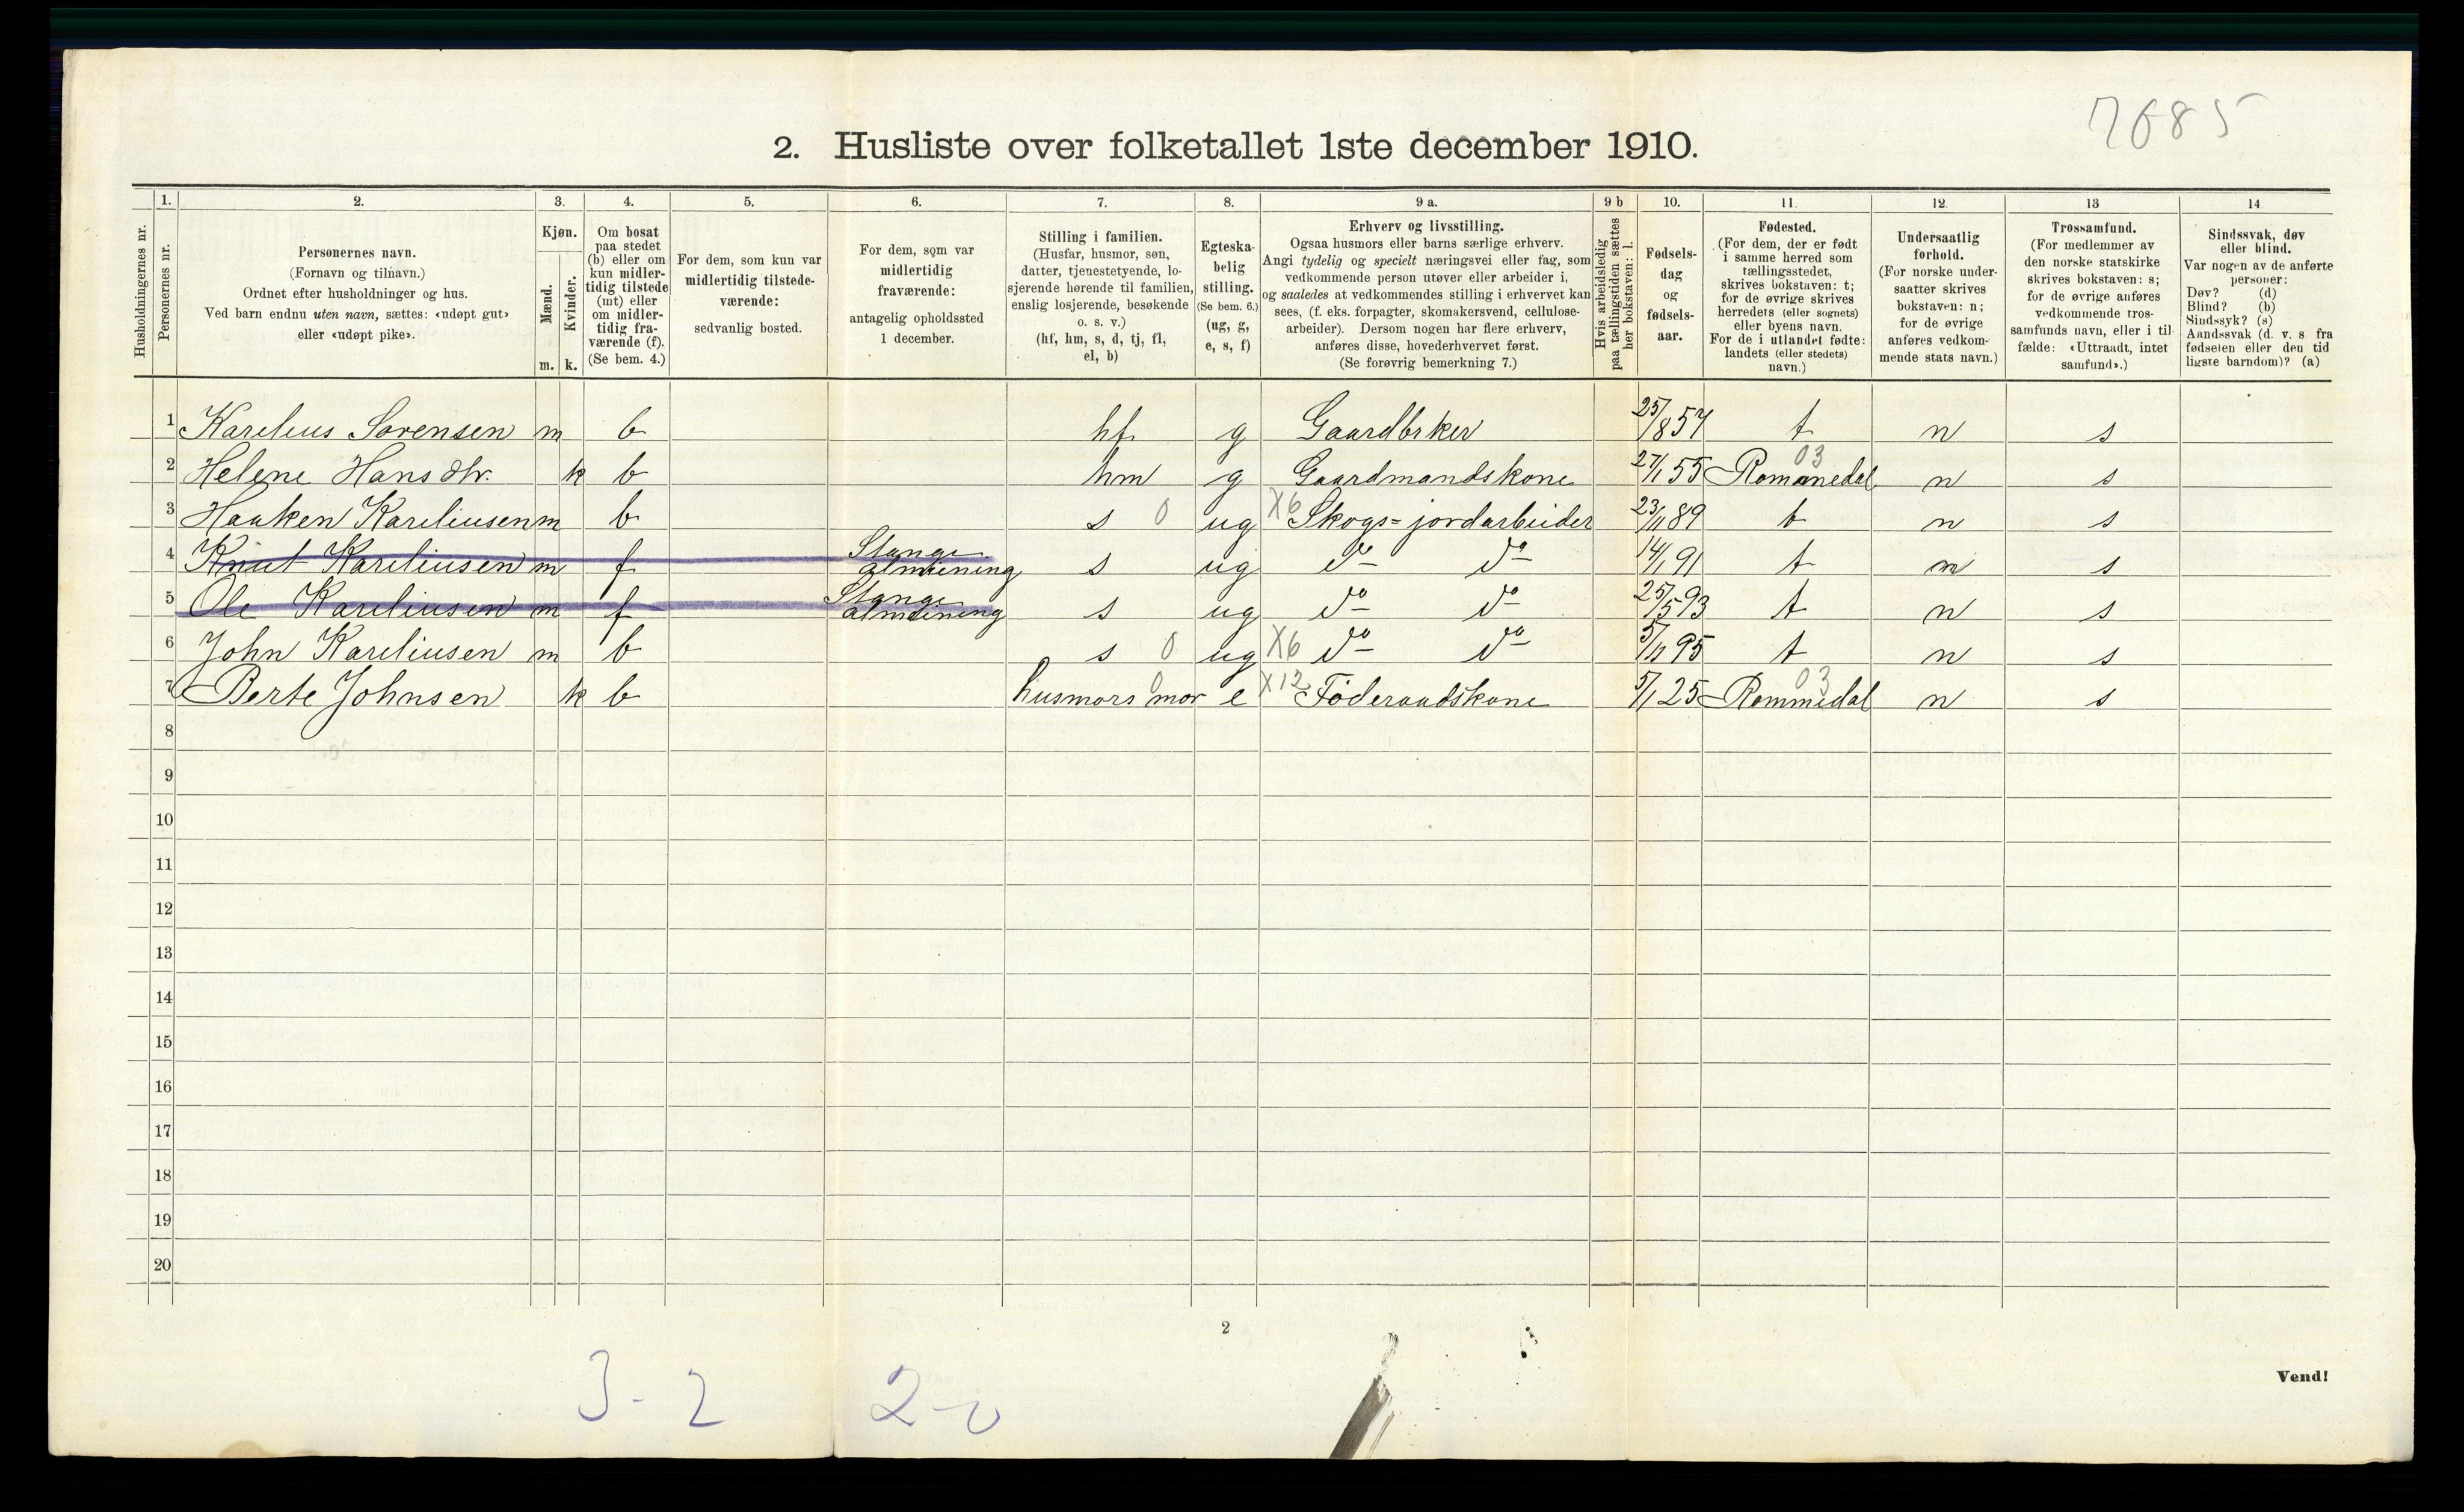 7685
2. Husliste over folketallet 1ste december 1910.
Husholdningernes nr.
1.
Personernes nr.
2.
Personernes navn.
(Fornavn og tilnavn.)
Ordnet efter husholdninger og hus.
Ved barn endnu uten navn, sættes: «udøpt gut»
eller «udøpt pike».
3.
Kjøn.
Mænd.
Kvinder.
m. k.
4.
Om bosat
paa stedet
(b) eller om
kun midler-
tidig tilstede
(mt) eller
om midler-
tidig fra-
værende (f).
(Se bem. 4.)
5.
For dem, som kun var
midlertidig tilstede-
værende:
sedvanlig bosted.
6.
For dem, som var
midlertidig
fraværende:
antagelig opholdssted
1 december.
7.
Stilling i familien.
(Husfar, husmor, søn,
datter, tjenestetyende, lo-
sjerende hørende til familien,
enslig losjerende, besøkende
o. s. v.)
(hf, hm, s, d, tj, fl,
el, b)
8.
Egteska-
belig
stilling.
(Se bem. 6.)
(ug, g,
e, s, f)
9 a.
Erhverv og livsstilling.
Ogsaa husmors eller barns særlige erhverv.
Angi tydelig og specielt næringsvei eller fag, som
vedkommende person utøver eller arbeider i,
og saaledes at vedkommendes stilling i erhvervet kan
sees, (f. eks. forpagter, skomakersvend, cellulose-
arbeider). Dersom nogen har flere erhverv,
anføres disse, hovederhvervet først.
(Se forøvrig bemerkning 7.)
9 b
Hvis arbeidsledig
paa tællingstiden sættes
her bokstaven: l.
10.
Fødsels-
dag
og
fødsels-
aar.
11.
Fødested.
(For dem, der er født
i samme herred som
tællingsstedet,
skrives bokstaven: t;
for de øvrige skrives
herredets (eller sognets)
eller byens navn.
For de i utlandet fødte:
landets (eller stedets)
navn.)
12.
Undersaatlig
forhold.
(For norske under-
saatter skrives
bokstaven: n;
for de øvrige
anføres vedkom-
mende stats navn.)
13
Trossamfund.
(For medlemmer av
den norske statskirke
skrives bokstaven: s;
for de øvrige anføres
vedkommende tros-
samfunds navn, eller i til-
fælde: «Uttraadt, intet
samfund».)
14
Sindssvak, døv
eller blind.
Var nogen av de anførte
personer:
Døv? (d)
Blind? (b)
Sindssyk? (s)
Aandssvak (d. v. s fra
fødselen eller den tid
ligste barndom)? (a)
1 Karelius Sorensen m b hf g Gaardbrker 25/8 57 t n s
2 Helene Hansdtr. k b hm g Gaardmandskone 27/1 55 Romanedal 03 n s
3 Haaken Kareliusen m b s 0 ug X6 Skogs=jordarbeider 23/11 89 t n s
4 Knut Kareliusen m f Stange almening s ug do do 14/1 91 t n s
5 Ole Kareliusen m f Stange almening s ug do do 25/5 93 t n s
6 John Kareliusen m b s 0 ug X6 do do 5/11 95 t n s
7 Berte Johnsen k b husmors mor 0 e X12 Føderaadskone 5/1 25 Rommedal 03 n s
8
9
10
11
12
13
14
15
16
17
18
19
20
2
3-2 2-0
Vend!